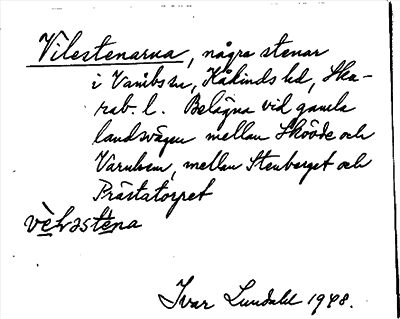 Vilestenarna, några stenar
i Varnhem, Kåkinds hd, Ska-
rab. l. Belägna vid gamla
landsvägen mellan Skövde och
Varnhem, mellan Stenberget och
Prästatorpet
vèləstena
Ivar Lundahl 1948.